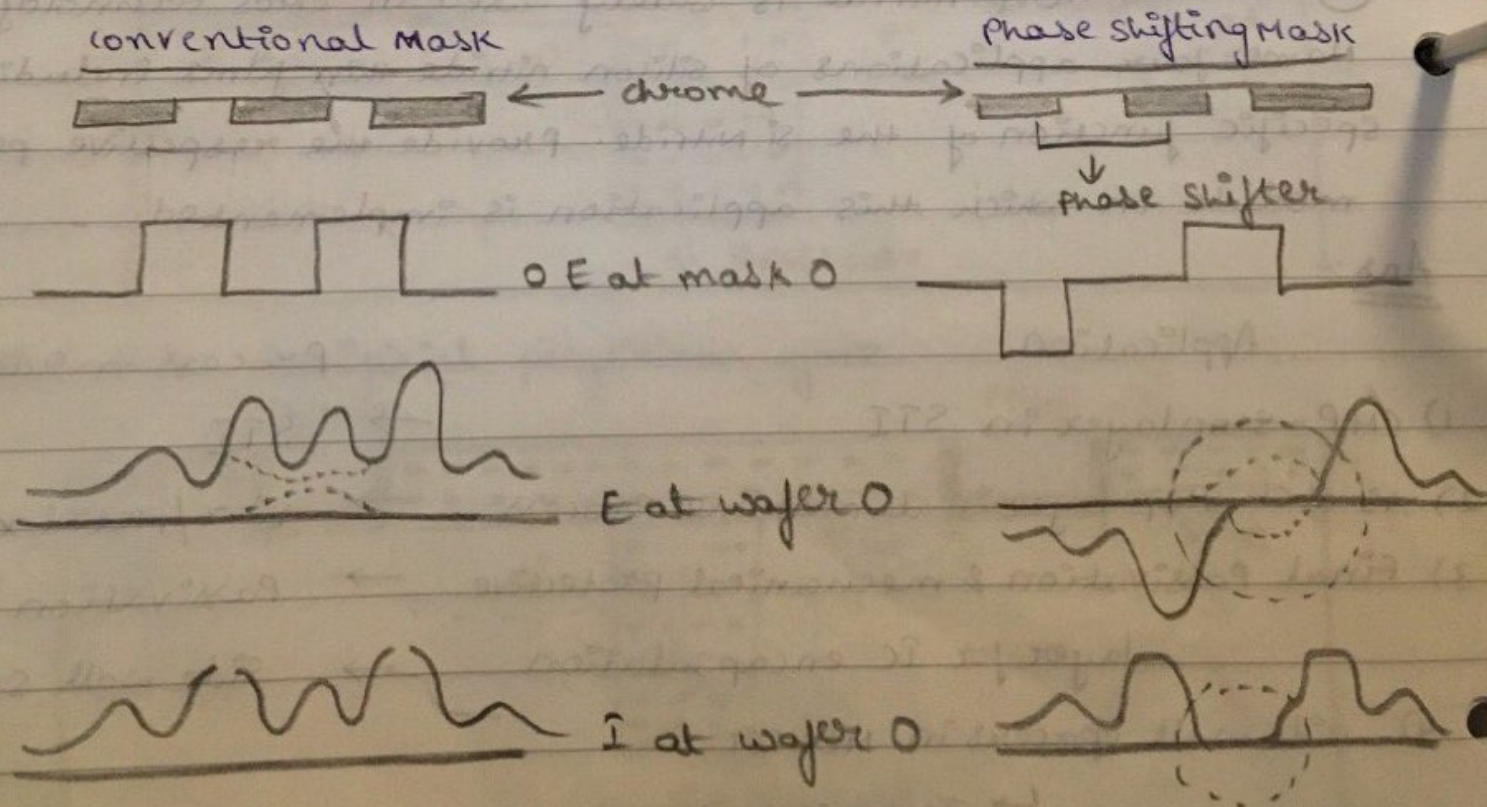 conventional Mask
Phase Shifting Mask
← chrome →
↓
Phase Shifter
0 E at mask 0
E at wafer 0
I at wafer 0